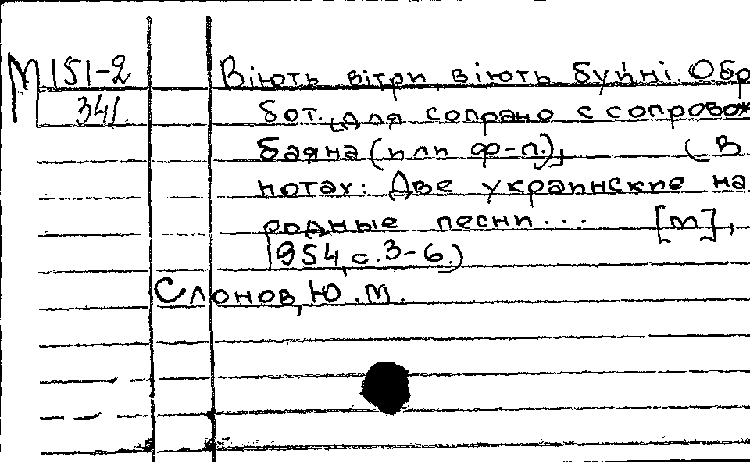 М 151-2 Віють вітри, віють буйні. Обр
341 бот. для сопрано с сопровож
баяна (или ф-п.), (В
нотах: Две украинские на
родные песни... [М],
1954, с. 3-6.)
Слонов, Ю. М.